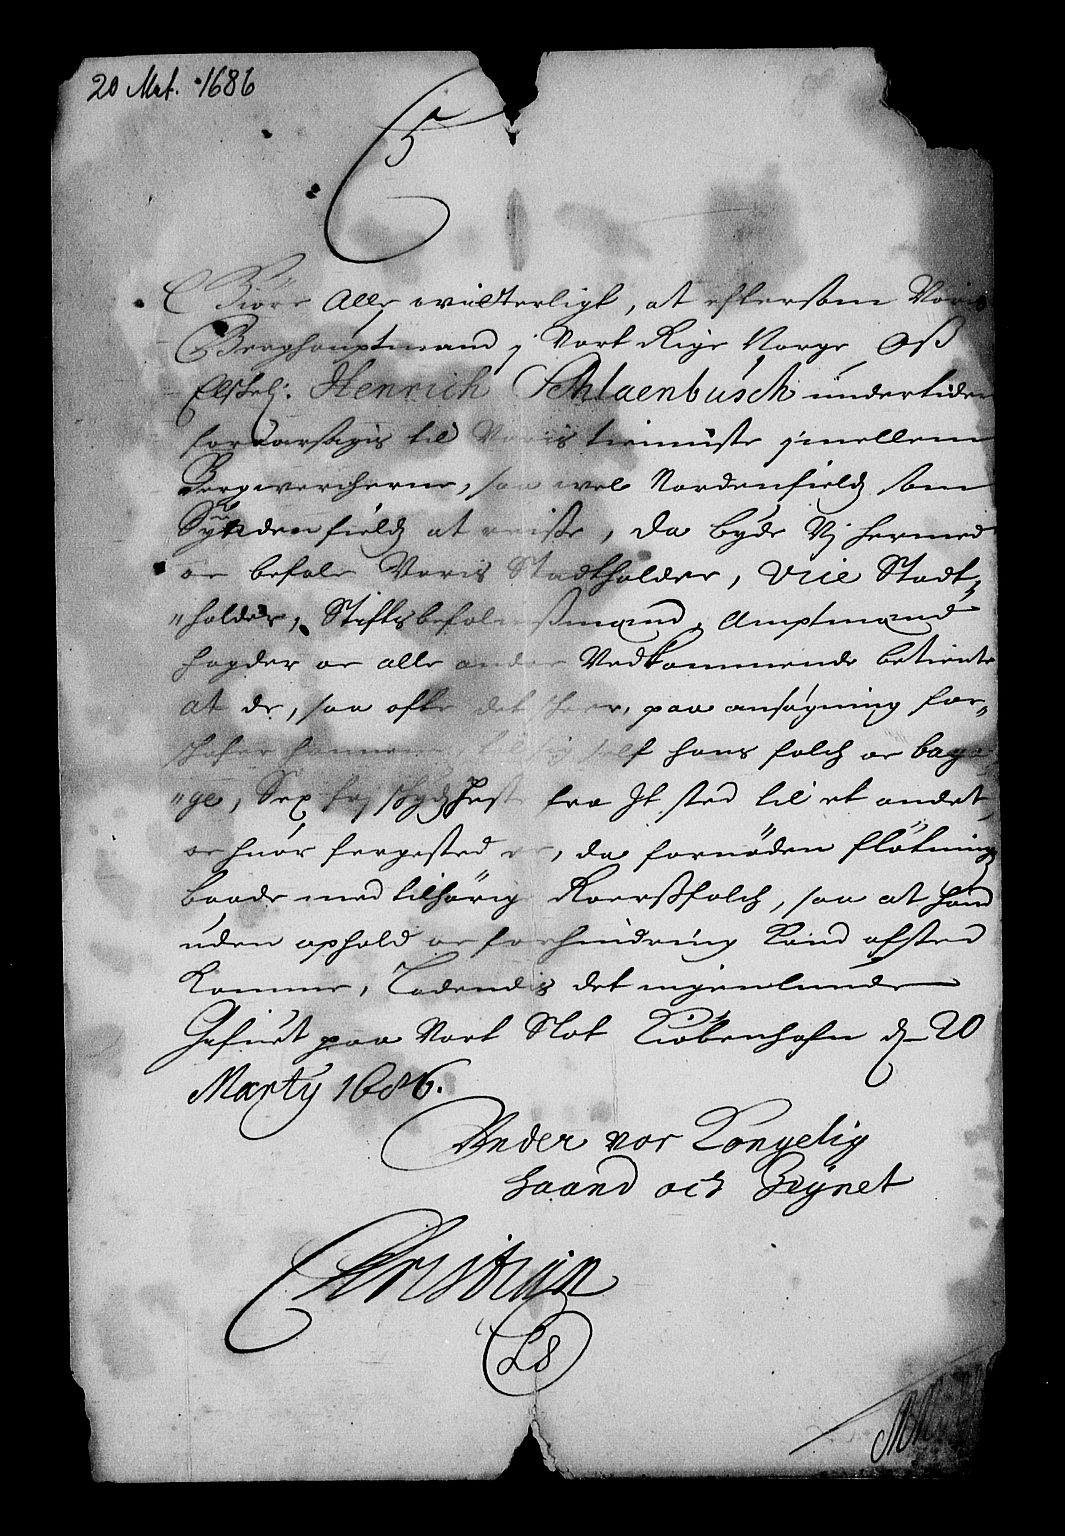 20 Mrt. 1686
C5
Giöre Alle vitterligt, at eftersom Voris
Berghauptmand j Vort Rige Norge Oß
Elskel: Henrich Schlaenbusch undertiden
foraarsagis til Voris tieniste jmellem
Bergwercherne, saa wel Nordenfields som
Syndenfields at reise, Da byde Vj hermed
oc befale Voris Stadtholder, Vice Stadt-
"holder, Stiftsbefalningsmand, Amptmænd
fogder oc alle andre Vedkommende betiente
at de, saa ofte det skeer, paa ansøgning for-
schafer hannem, til sig self hans folch oc baga-
"ge, Sex frj schydshest fra It sted til et andet,
oc huor fergested er, da fornöden flötning
baade med tilhörig Roersfolch, saa at hand
uden ophold oc forhindring kand afsted
komme, Ladendis det ingenlunde
Gifuet paa Vort Slot Kiöbenhafn d. 20
Marty 1686.
Under vor Kongelig
haand och Zignet
Christian
L S